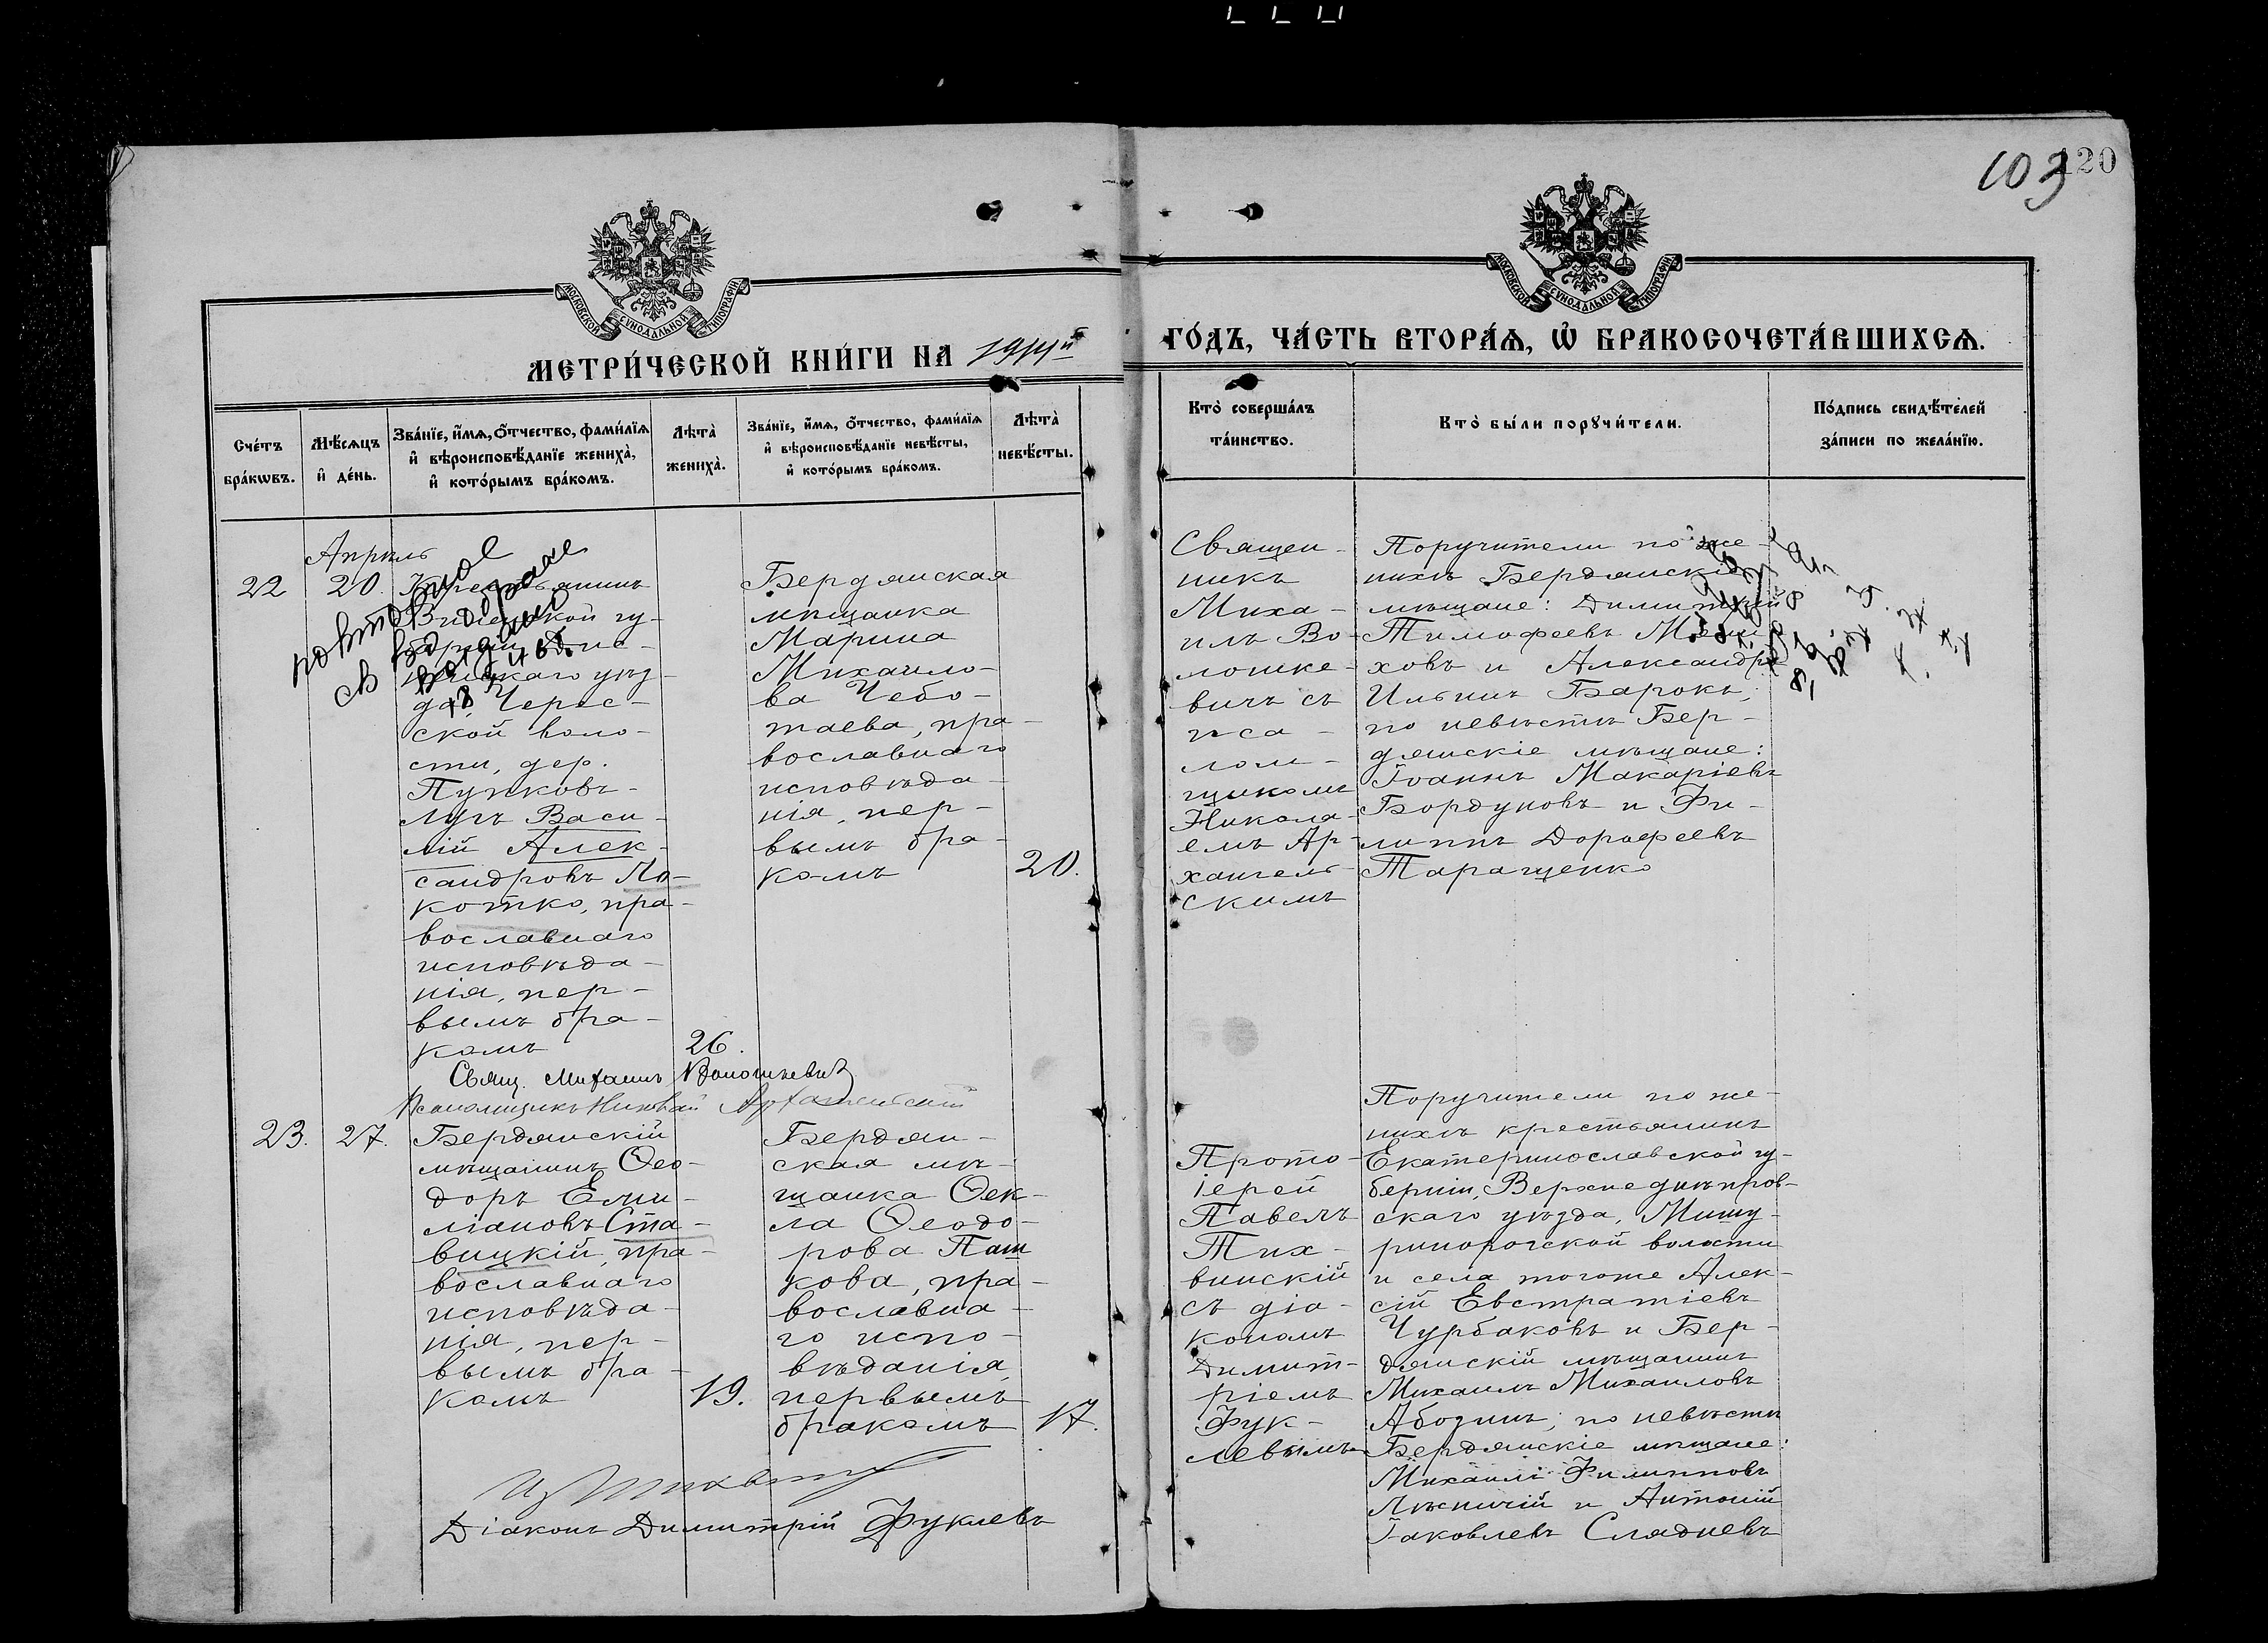 103
120
МОСКОВСКОЙ СѴНОДАЛЬНОЙ ТИПОГРАФІИ
МОСКОВСКОЙ СѴНОДАЛЬНОЙ ТИПОГРАФІИ
МЕТРИ́ЧЕСКОЙ КНИ́ГИ НА 1914й
ГО́ДЪ, ЧА́СТЬ ВТОРА́Ѧ, Ѡ҆ БРАКОСОЧЕТА́ВШИХСѦ.
Сче́тъ бра́кѡвъ.
Мѣ́сѧцъ и҆ де́нь.
Зва́нїе, и҆́мѧ, ѻ҆́тчество, фами́лїѧ и҆ вѣроисповѣ́данїе жениха̀, и҆ кото́рымъ бра́комъ.
Лѣта̀ жениха̀.
Зва́нїе, и҆́мѧ, ѻ҆́тчество, фами́лїѧ и҆ вѣроисповѣ́данїе невѣ́сты, и҆ кото́рымъ бра́комъ.
Лѣта̀ невѣ́сты.
Кто̀ соверша́лъ та́инство.
Кто̀ бы́ли порꙋчи́тели.
По́дпись свидѣ́телей за́писи по жела́нїю.
Апрѣль
22
20.
Крестьянинъ
Виленской гу-
да, Черес-
ской воло-
сти, дер.
Пунковъ-
лугъ Васи-
лій Алек-
сандровъ Ло-
котко, пра-
вославнаго
исповѣда-
нія, пер-
вымъ бра-
комъ
26.
Бердянская
мѣщанка
Марина
Михаило-
ва Чебо-
таева, пра-
вославнаго
исповѣда-
нія, пер-
вымъ бра-
комъ
20.
Священ-
никъ
Миха-
илъ Во-
лошке-
вичъ съ
пса-
лом-
щикомъ
Никола-
емъ Ар-
хангель-
скимъ
Поручители по же-
нихѣ Бердянскіе
мѣщане: Димитрій
Тимофеевъ
ховъ и Александръ
Ильинъ Барокъ;
по невѣстѣ Бер-
дянскіе мѣщане:
Іоаннъ Макаріевъ
Бордуновъ и Фи-
липпъ Дорофеевъ
Таращенко
повторное
св во о браке
выдано
Свящ. Михаилъ Волошкевичъ
Псаломщикъ Николай Архангельскій
23.
27.
Бердянскій
мѣщанинъ Ѳео-
доръ Еми-
ліановъ Ста-
вицкій, пра-
вославнаго
исповѣда-
нія, пер-
вымъ бра-
комъ
19.
Бердян-
ская мѣ-
щанка Ѳек-
ла Ѳеодо-
рова Паш
кова, пра-
вославна-
го испо-
вѣданія,
первымъ
бракомъ
17.
Прото-
іерей
Павелъ
Тих-
винскій
съ діа-
кономъ
Димит-
ріемъ
Фук-
левымъ
Поручители по же-
нихѣ крестьянинъ
Екатеринославской гу-
берніи, Верхнеднѣпров-
скаго уѣзда, Мишу-
ринорогской волости
и села тогоже Алек-
сій Евстратіевъ
Чурбаковъ и Бер-
дянскій мѣщанинъ
Михаилъ Михаиловъ
Абозинъ; по невѣстѣ
Бердянскіе мѣщане:
Михаилъ Филипповъ
Лѣсничій и Антоній
Іаковлевъ Сладневъ
Діаконъ Димитрій Фуклевъ